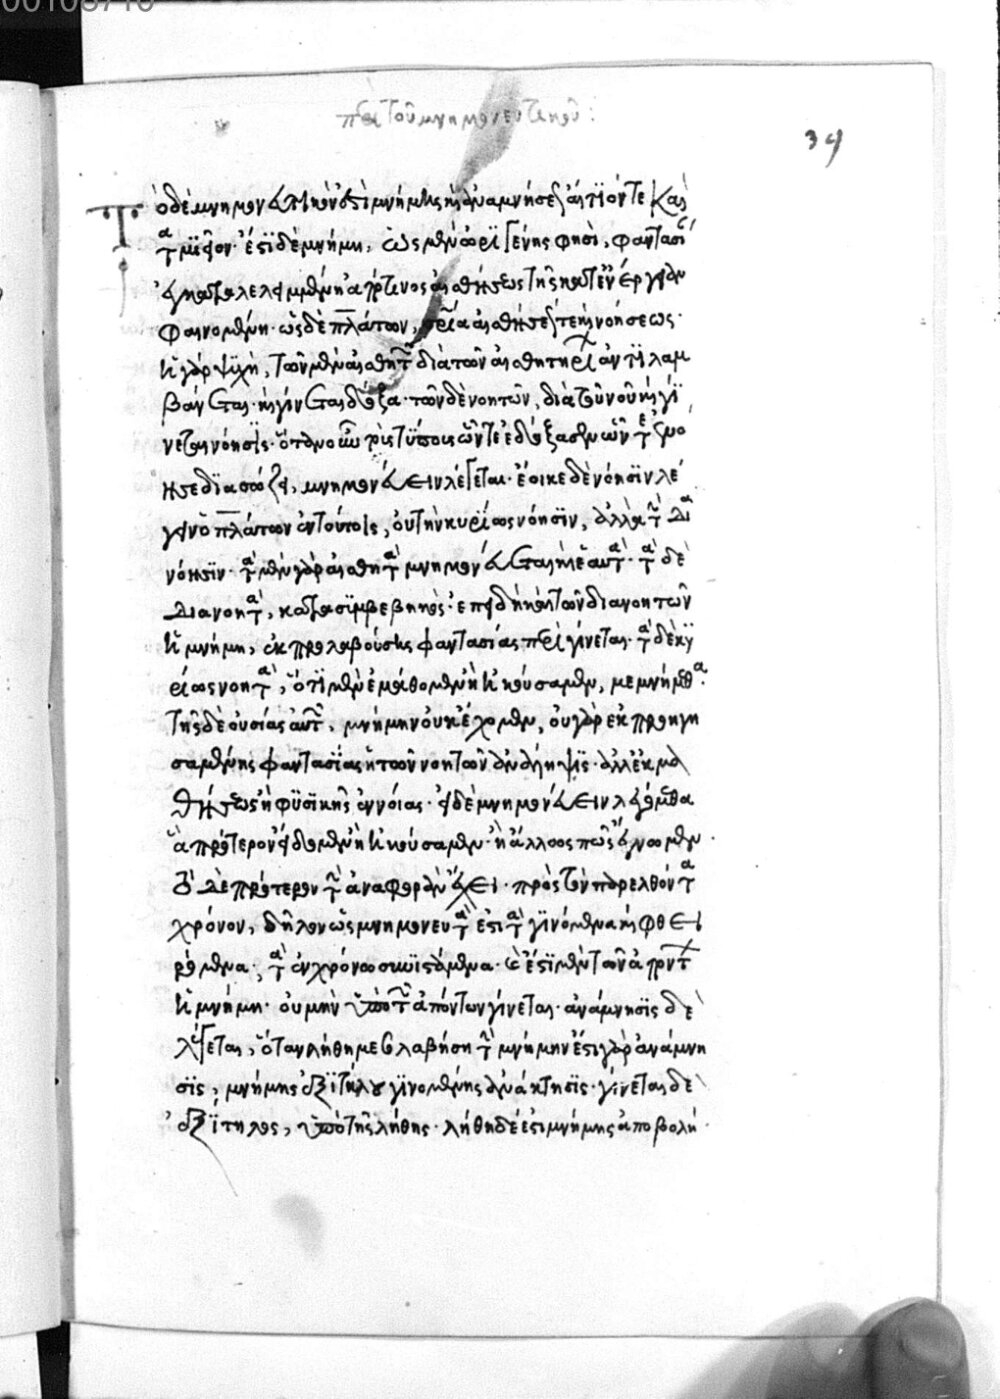 00108710
περὶ τοῦ μνημονευτικοῦ:
34
Τὸ δὲ μνημονευτικόν ἐστι μνήμης καὶ ἀναμνήσεως αἴτιόν τε καὶ
ταμιεῖον· ἔστι δὲ μνήμη, ὡς μὲν ὠριγένης φησὶ, φαντασία
ἐγκαταλελειμμένη ἀπό τινος αἰσθήσεως τῆς κατ' ἐνέργειαν
φαινομένη· ὡς δὲ πλάτων, σωτηρία αἰσθήσεώς τε καὶ νοήσεως·
ἡ γὰρ ψυχὴ, τῶν μὲν αἰσθητῶν διὰ τῶν αἰσθητηρίων ἀντιλαμ
βάνεται· καὶ γίνεται δόξα· τῶν δὲ νοητῶν, διὰ τοῦ νοῦ καὶ γί
νεται νόησις· ὅταν οὖν τοὺς τύπους ὧν τε ἐδόξασεν ὧν τε ἐνό
ησε διασώζῃ, μνημονεύειν λέγεται· ἔοικε δὲ νόησιν λέ
γειν ὁ πλάτων ἐν τούτοις, οὐ τὴν κυρίως νόησιν, ἀλλὰ τὴν δια
νόησιν· τὰ μὲν γὰρ αἰσθητὰ μνημονεύεται καθ' ἑαυτά· τὰ δὲ
διανοητὰ, κατὰ συμβεβηκός· ἐπειδὴ καὶ τῶν διανοητῶν
ἡ μνήμη, ἐκ προλαβούσης φαντασίας περιγίνεται· τὰ δὲ κυ
ρίως νοητὰ, ὅτι μὲν ἐμάθομεν ἢ ἠκούσαμεν, μεμνήμεθα·
τῆς δὲ οὐσίας αὐτῶν, μνήμην οὐκ ἔχομεν, οὐ γὰρ ἐκ προηγη
σαμένης φαντασίας ἡ τῶν νοητῶν ἀνάληψις· ἀλλ' ἐκ μα
θήσεως ἢ φυσικῆς ἐννοίας· εἰ δὲ μνημονεύειν λεγόμεθα
ἃ πρότερον εἴδομεν ἢ ἠκούσαμεν· ἢ ἄλλως πως ἔγνωμεν·
τὸ δὲ πρότερον τὴν ἀναφορὰν ἔχει· πρὸς τὸν παρελθόντα
χρόνον, δῆλον ὡς μνημονευτά ἐστι τὰ γινόμενα καὶ φθει
ρόμενα, τὰ ἐν χρόνῳ συνιστάμενα· καὶ ἔστι μὲν τῶν ἀπόντων
ἡ μνήμη· οὐ μὴν ὑπὸ τῶν ἀπόντων γίνεται· ἀνάμνησις δὲ
λέγεται, ὅταν λήθη μεσολαβήσῃ τὴν μνήμην ἔστι γὰρ ἀνάμνη
σις, μνήμης ἐξιτήλου γινομένης ἀνάκτησις· γίνεται δὲ
ἐξίτηλος, ὑπὸ τῆς λήθης· λήθη δέ ἐστι μνήμης ἀποβολή·